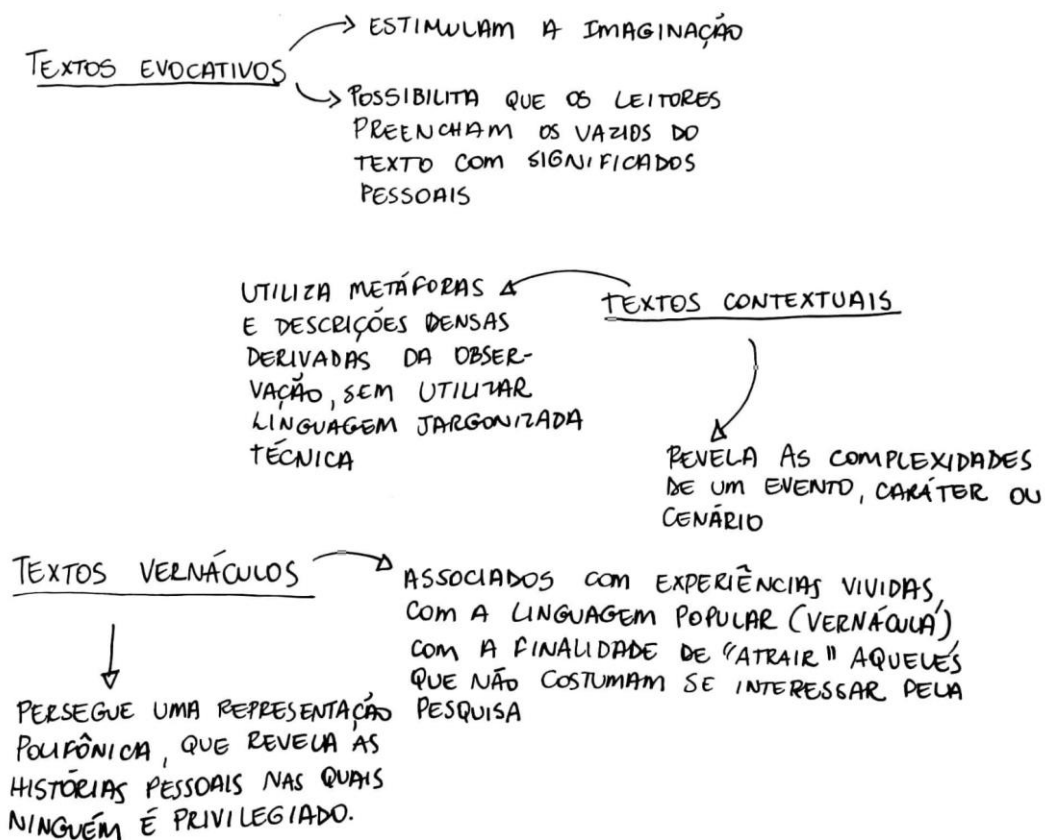 TEXTOS EVOCATIVOS
ESTIMULAM A IMAGINAÇÃO
POSSIBILITA QUE OS LEITORES
PREENCHAM OS VAZIOS DO
TEXTO COM SIGNIFICADOS
PESSOAIS
TEXTOS CONTEXTUAIS
UTILIZA METÁFORAS
E DESCRIÇÕES DENSAS
DERIVADAS DA OBSER-
VAÇÃO, SEM UTILIZAR
LINGUAGEM JARGONIZADA
TÉCNICA
REVELA AS COMPLEXIDADES
DE UM EVENTO, CARÁTER OU
CENÁRIO
TEXTOS VERNÁCULOS
ASSOCIADOS COM EXPERIÊNCIAS VIVIDAS,
COM A LINGUAGEM POPULAR (VERNÁCULA),
COM A FINALIDADE DE "ATRAIR" AQUELES
QUE NÃO COSTUMAM SE INTERESSAR PELA
PESQUISA
PERSEGUE UMA REPRESENTAÇÃO
POLIFÔNICA, QUE REVELA AS
HISTÓRIAS PESSOAIS NAS QUAIS
NINGUÉM É PRIVILEGIADO.